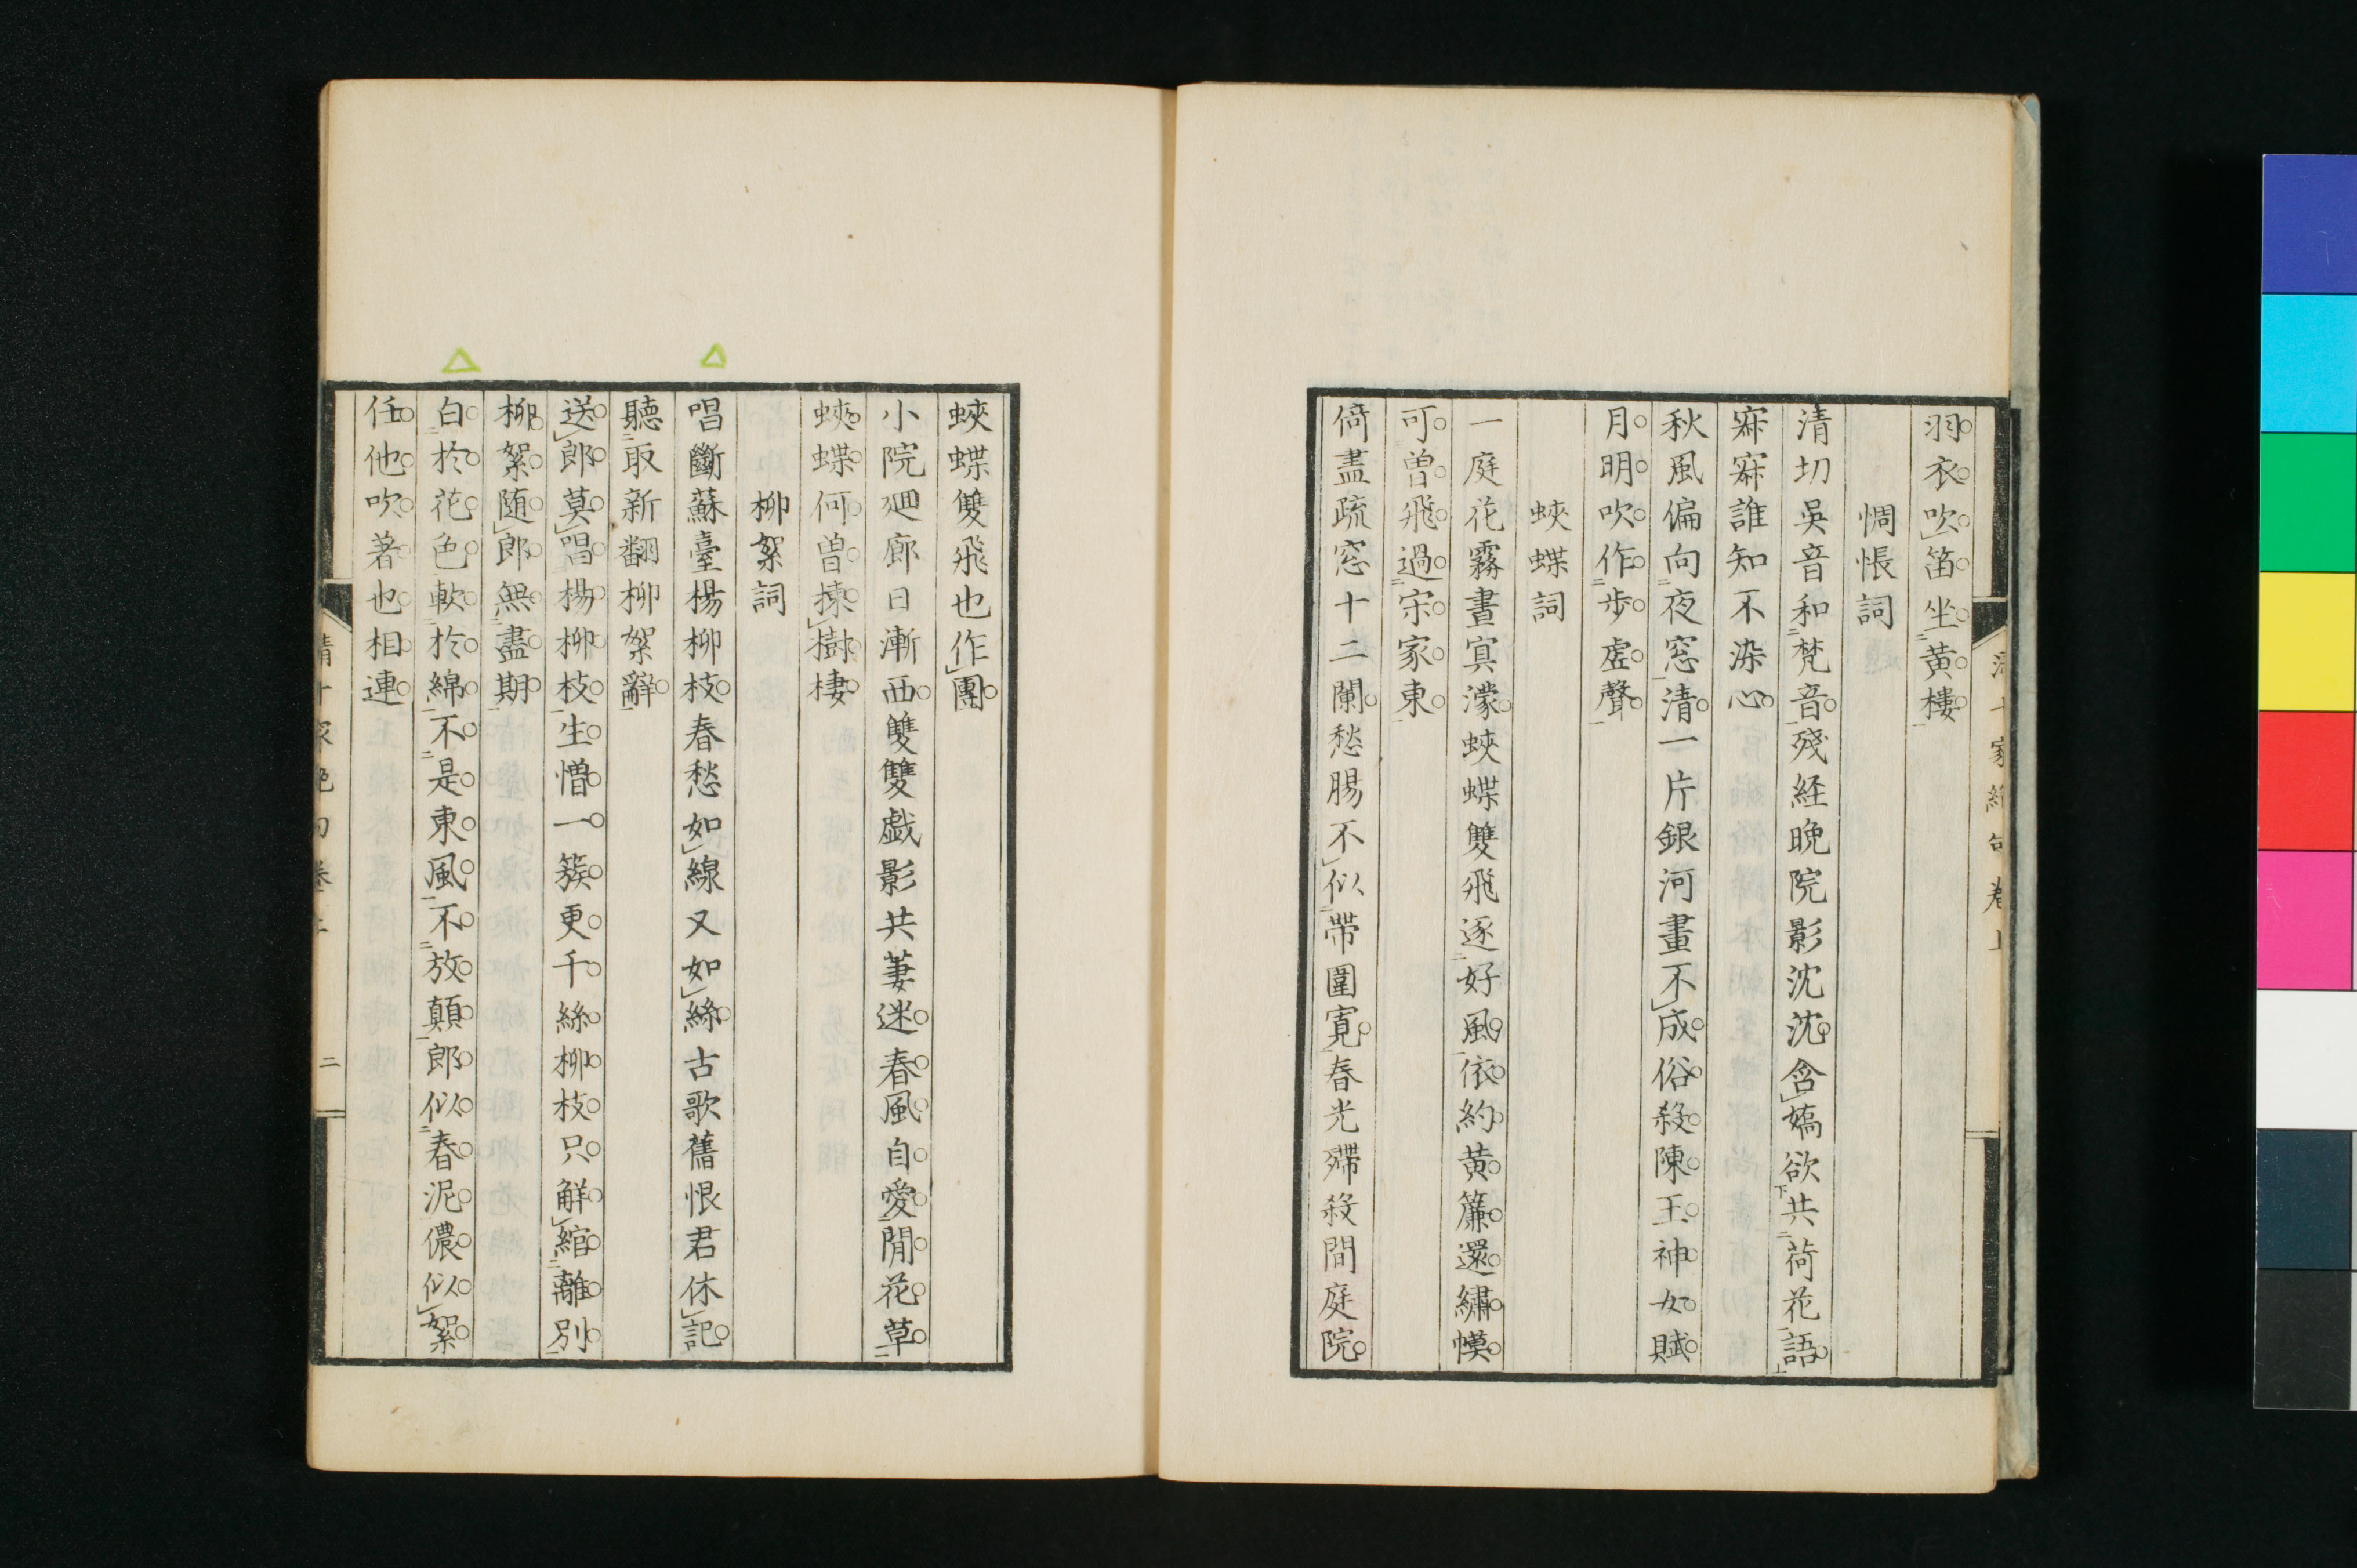 羽衣吹笛坐黃樓
惆悵詞
清切吳音和梵音殘経晩院影沈沈含嬌欲共荷花語
寂寂誰知不染心
秋風偏向夜窓清一片銀河畫不成俗殺陳王神女賦
月明吹作步虛聲
蛺蝶詞
一庭花霧晝冥濛蛺蝶雙飛逐好風依約黃簾還繡幙
可曽飛過宋家東
倚盡疏窓十二闌愁腸不似帶圍寬春光殢殺閒庭院
蛺蝶雙飛也作團
小院廻廊日漸西雙雙戯影共萋迷春風自愛閒花草
蛺蝶何曽揀樹棲
柳絮詞
唱斷蘇臺楊柳枝春愁如線又如絲古歌舊恨君休記
聽取新翻柳絮辭
送郎莫唱楊柳枝生憎一簇更千絲柳枝只解綰離別
柳絮随郎無盡期
白於花色軟於綿不是東風不放顛郎似春泥儂似絮
任他吹著也相連
清十家絶句卷上 二